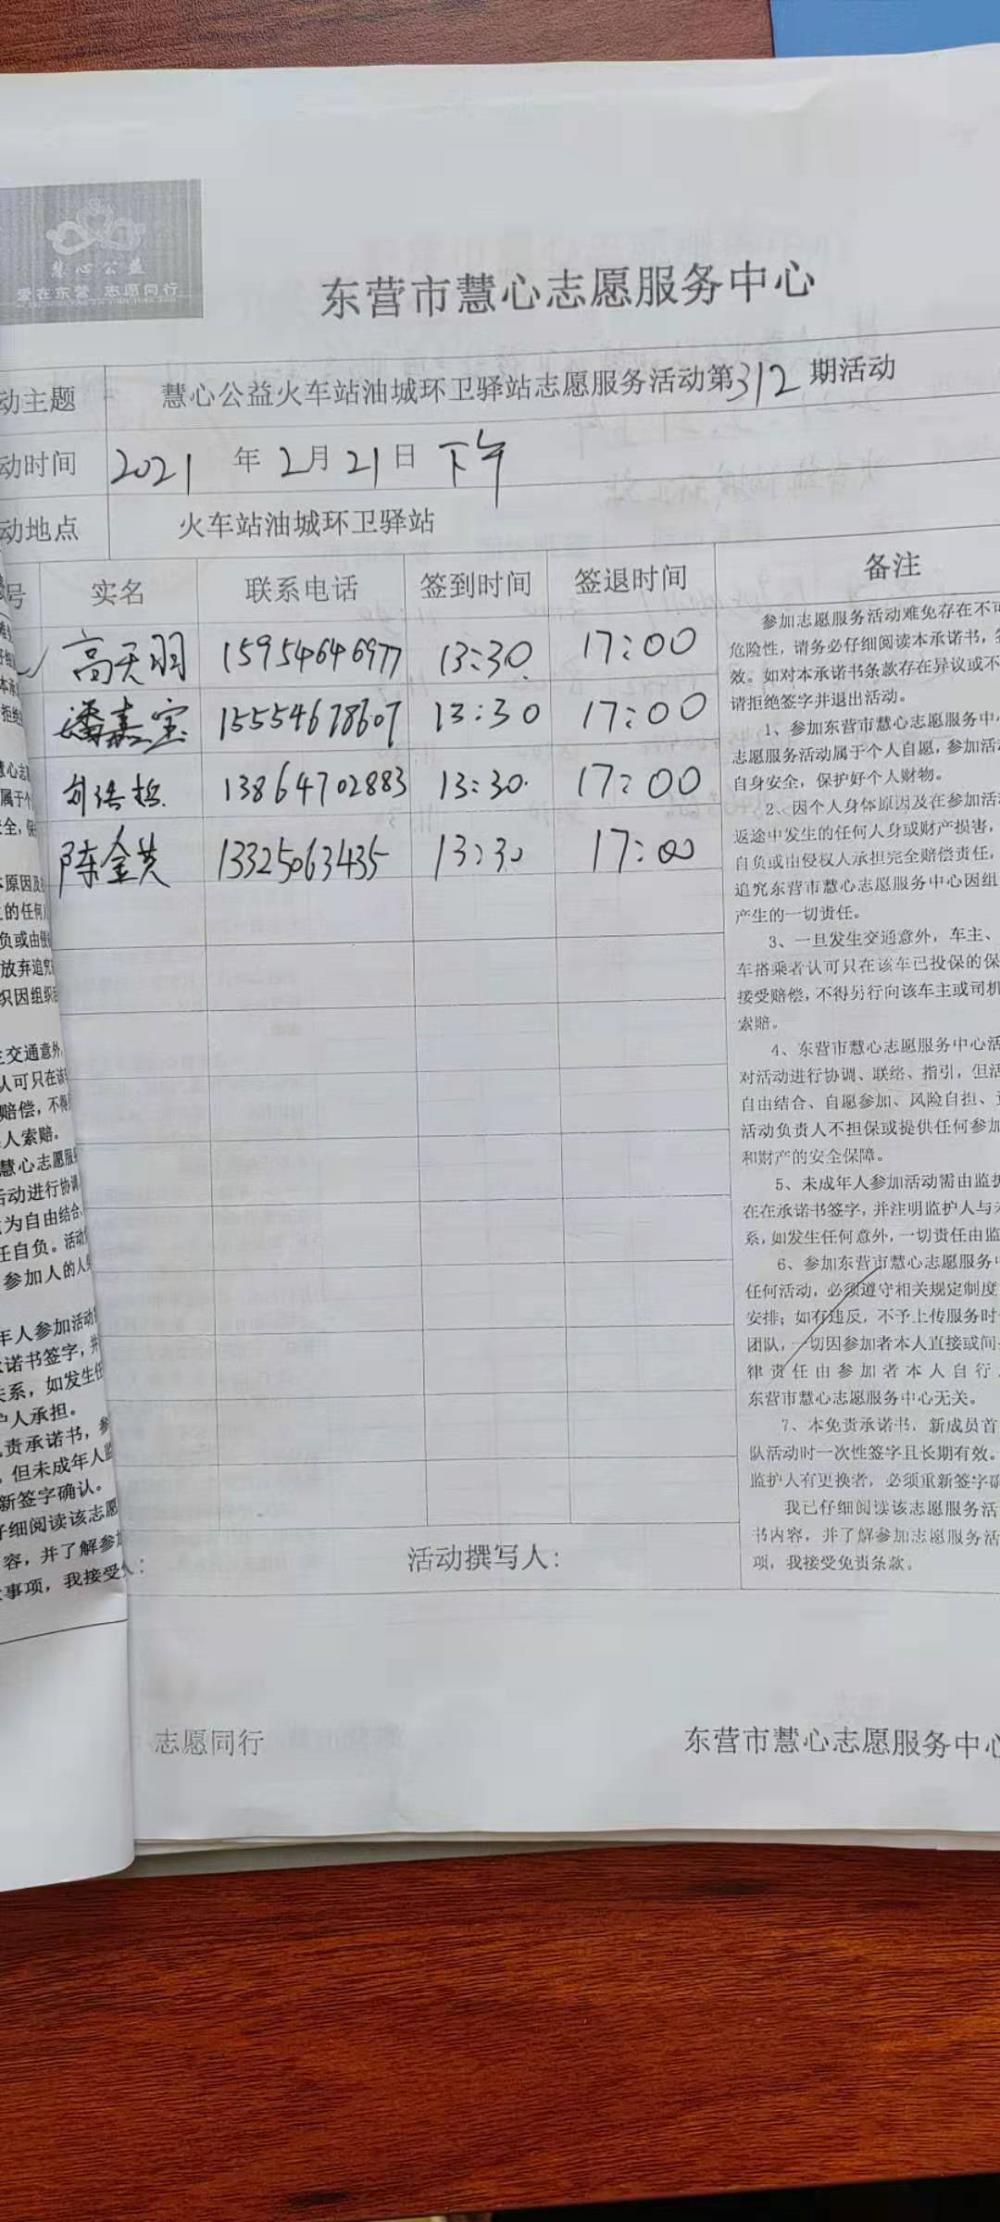 慧心公益
爱在东营 志愿同行
东营市慧心志愿服务中心
动主题 慧心公益火车站油城环卫驿站志愿服务活动第312期活动
动时间 2021年2月21日下午
动地点 火车站油城环卫驿站
号 实名 联系电话 签到时间 签退时间 备注
高天羽 15954646977 13:30 17:00
潘嘉宝 15554678607 13:30 17:00
13864702883 13:30 17:00
陈金芝 13325063435 13:30 17:00
参加志愿服务活动难免存在不可
危险性，请务必仔细阅读本承诺书，签
效。如对本承诺书条款存在异议或不
请拒绝签字并退出活动。
1、参加东营市慧心志愿服务中心
志愿服务活动属于个人自愿，参加活动
自身安全，保护好个人财物。
2、因个人身体原因及在参加活动
返途中发生的任何人身或财产损害，
自负或由侵权人承担完全赔偿责任，
追究东营市慧心志愿服务中心因组
产生的一切责任。
3、一旦发生交通意外，车主、
车搭乘者认可只在该车已投保的保
接受赔偿，不得另行向该车主或司机
索赔。
4、东营市慧心志愿服务中心活
对活动进行协调、联络、指引，但活
自由结合、自愿参加、风险自担、责
活动负责人不担保或提供任何参加
和财产的安全保障。
5、未成年人参加活动需由监护
在在承诺书签字，并注明监护人与未
系，如发生任何意外，一切责任由监
6、参加东营市慧心志愿服务中
任何活动，必须遵守相关规定制度
安排；如有违反，不予上传服务时
团队，一切因参加者本人直接或间
律责任由参加者本人自行
东营市慧心志愿服务中心无关。
7、本免责承诺书，新成员首
队活动时一次性签字且长期有效。
监护人有更换者，必须重新签字确
我已仔细阅读该志愿服务活
书内容，并了解参加志愿服务活
项，我接受免责条款。
活动撰写人：
志愿同行
东营市慧心志愿服务中心
慧心志
属于个
全，保
原因及
的任何
负或由侵
放弃追究
织因组织
交通意外
人可只在该
赔偿，不得
人索赔。
慧心志愿服
活动进行协调
为自由结合
任自负。活动
参加人的人
年人参加活动
诺书签字，并
关系，如发生任
护人承担。
责承诺书，参
，但未成年人监
新签字确认。
仔细阅读该志愿
容，并了解参加
事项，我接受